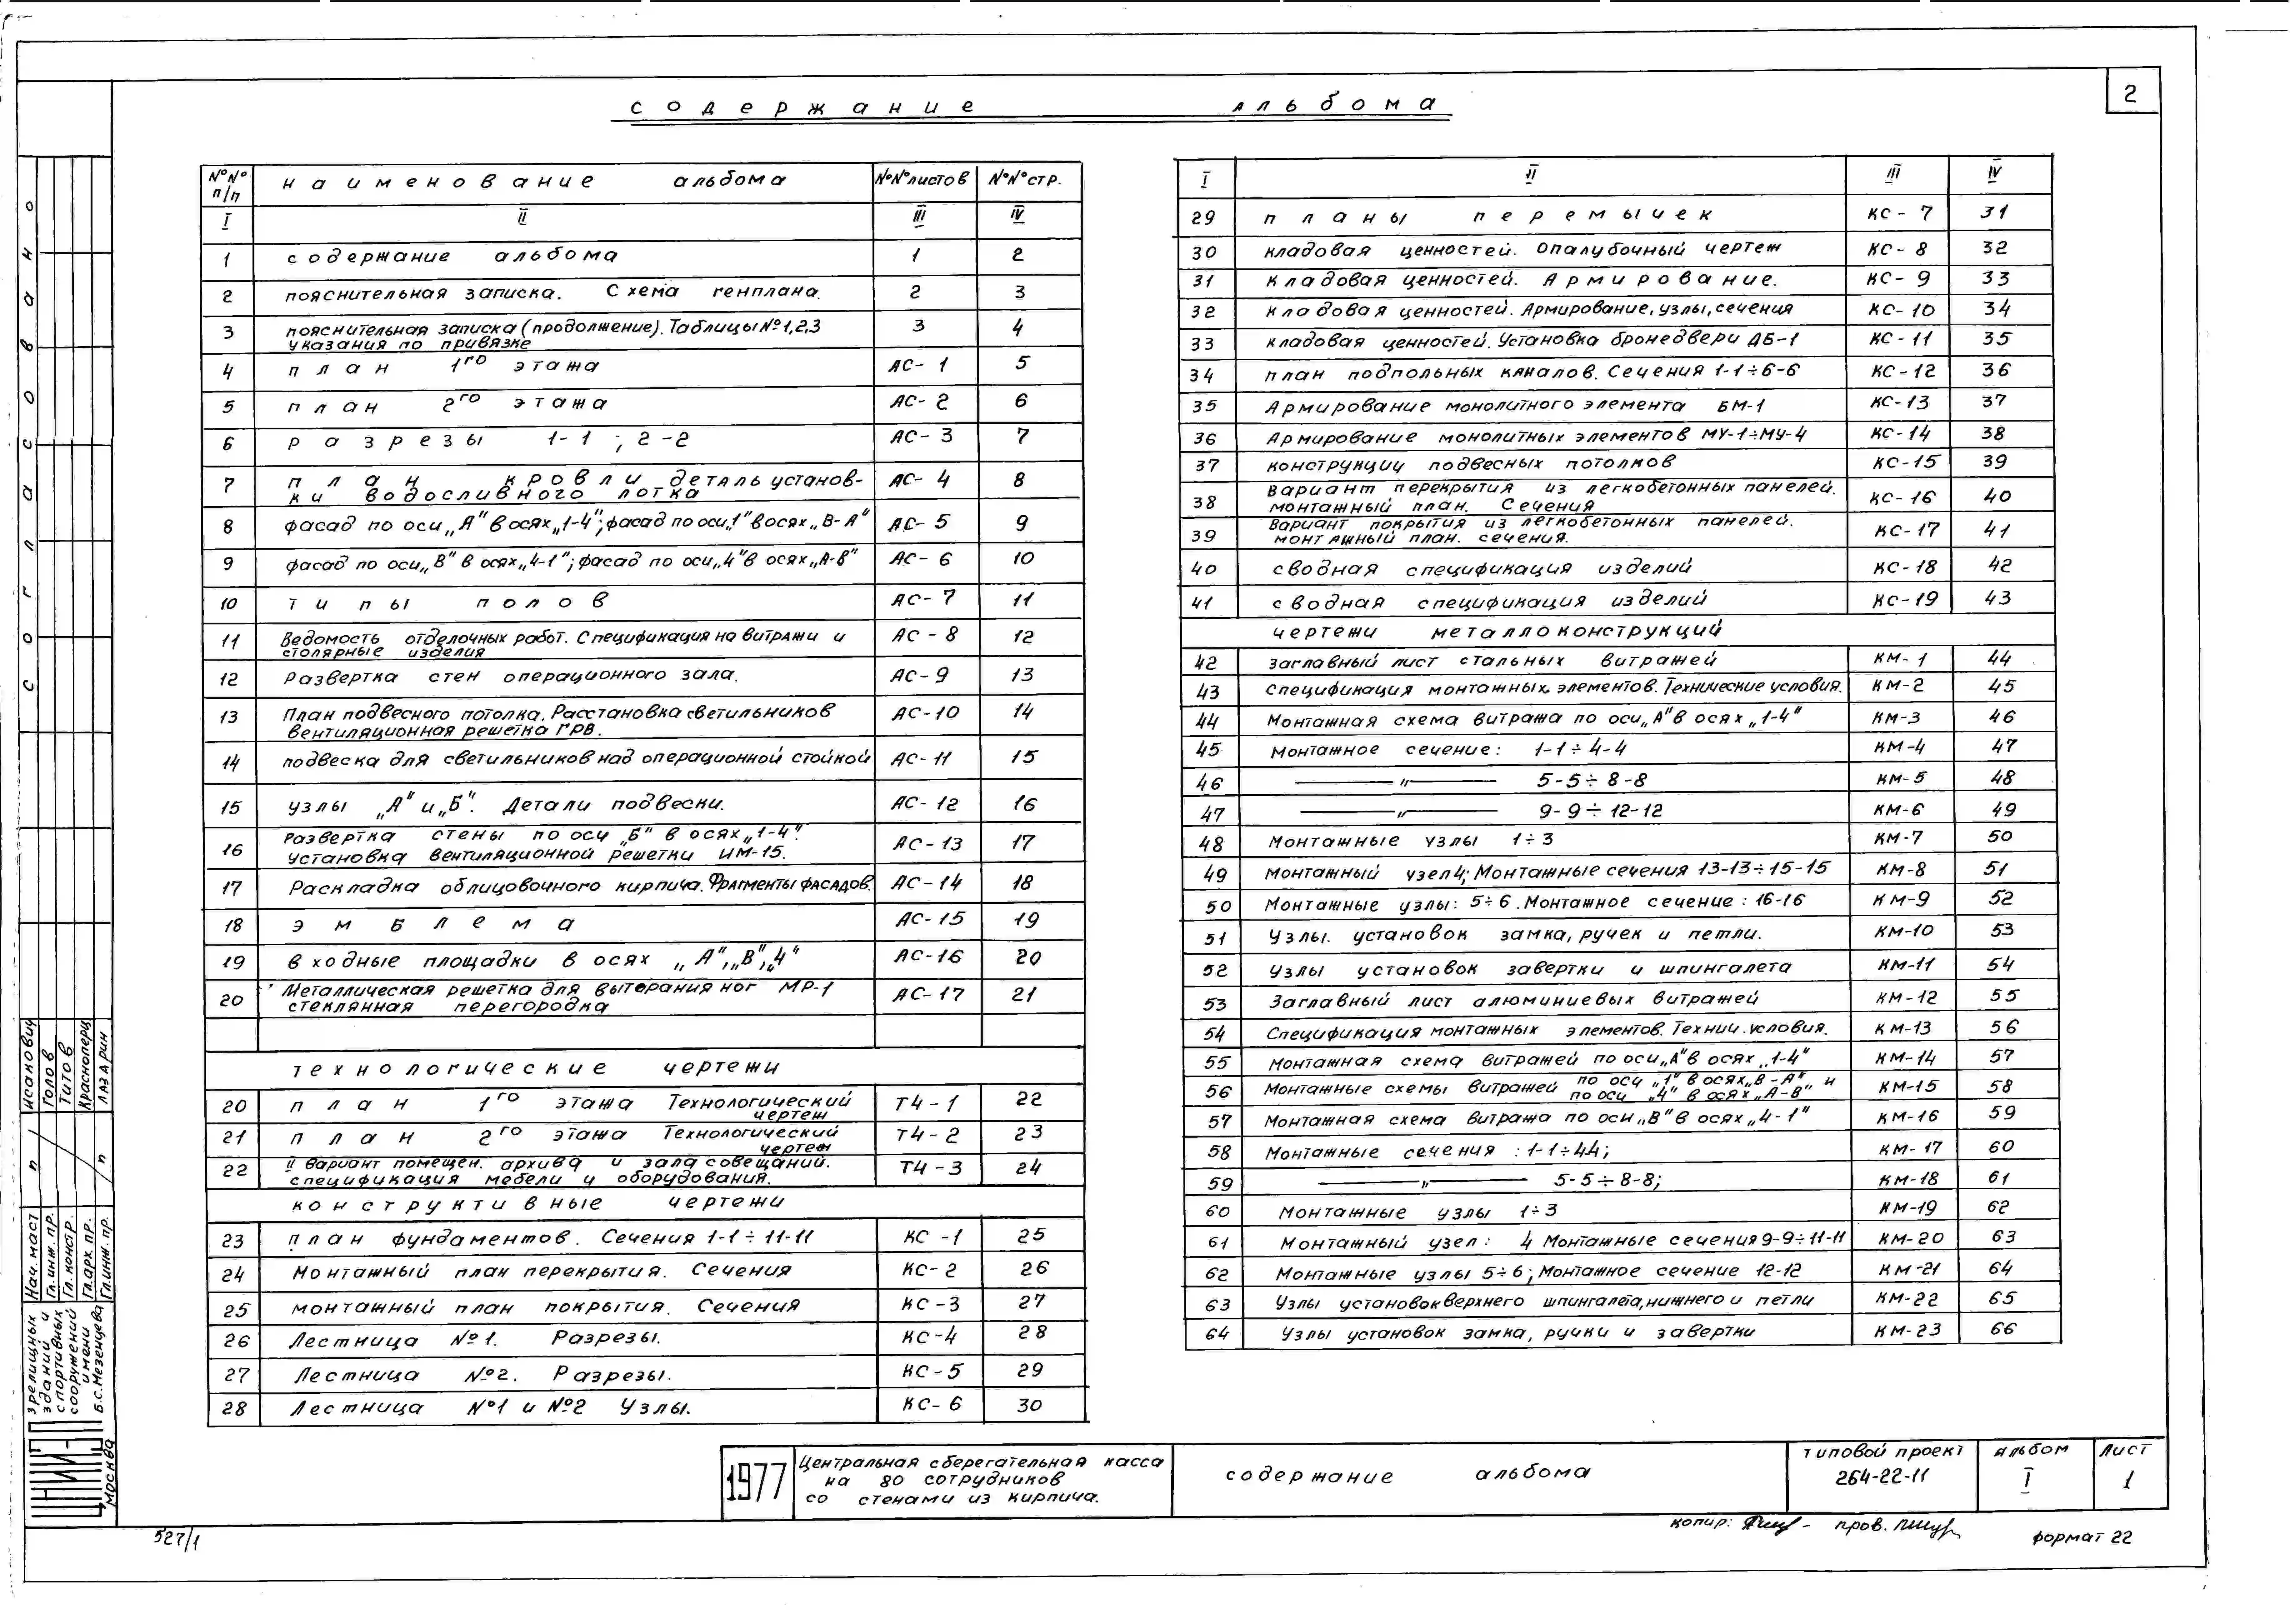 содержание альбома
2
№№ п/п наименование альбома №№листов №№стр.
I II III IV
1 содержание альбома 1 2
2 пояснительная записка. Схема генплана. 2 3
3 пояснительная записка (продолжение). Таблицы №1,2,3 3 4
указания по привязке
4 план 1го этажа АС-1 5
5 план 2го этажа АС-2 6
6 разрезы 1-1; 2-2 АС-3 7
7 план кровли деталь установ- АС-4 8
ки водосливного лотка
8 фасад по оси „А" в осях „1-4"; фасад по оси „1" в осях „В-А" АС-5 9
9 фасад по оси „В" в осях „4-1"; фасад по оси „4" в осях „А-В" АС-6 10
10 типы полов АС-7 11
11 Ведомость отделочных работ. Спецификация на витражи и АС-8 12
столярные изделия
12 Развертка стен операционного зала. АС-9 13
13 План подвесного потолка. Расстановка светильников АС-10 14
вентиляционная решетка ГРВ.
14 подвеска для светильников над операционной стойкой АС-11 15
15 узлы „А" и „Б". Детали подвески. АС-12 16
16 Развертка стены по оси „Б" в осях „1-4". АС-13 17
установка вентиляционной решетки ИМ-15.
17 Раскладка облицовочного кирпича. Фрагменты фасадов. АС-14 18
18 эмблема АС-15 19
19 входные площадки в осях „А", „В", „4" АС-16 20
20 Металлическая решетка для вытерания ног МР-1 АС-17 21
стеклянная перегородка
технологические чертежи
20 план 1го этажа Технологический ТЧ-1 22
чертеж
21 план 2го этажа Технологический ТЧ-2 23
чертеж
22 II вариант помещен. архива и зала совещаний. ТЧ-3 24
спецификация мебели и оборудования.
конструктивные чертежи
23 план фундаментов. Сечения 1-1÷11-11 КС-1 25
24 Монтажный план перекрытия. Сечения КС-2 26
25 монтажный план покрытия. Сечения КС-3 27
26 Лестница №1. Разрезы. КС-4 28
27 Лестница №2. Разрезы. КС-5 29
28 Лестница №1 и №2 Узлы. КС-6 30
I II III IV
29 планы перемычек КС-7 31
30 кладовая ценностей. Опалубочный чертеж КС-8 32
31 кладовая ценностей. Армирование. КС-9 33
32 кладовая ценностей. Армирование, узлы, сечения КС-10 34
33 кладовая ценностей. Установка бронедвери ДБ-1 КС-11 35
34 план подпольных каналов. Сечения 1-1÷6-6 КС-12 36
35 Армирование монолитного элемента БМ-1 КС-13 37
36 Армирование монолитных элементов МУ-1÷МУ-4 КС-14 38
37 конструкции подвесных потолков КС-15 39
38 Вариант перекрытия из легкобетонных панелей. КС-16 40
монтажный план. Сечения
39 Вариант покрытия из легкобетонных панелей. КС-17 41
монтажный план. сечения.
40 сводная спецификация изделий КС-18 42
41 сводная спецификация изделий КС-19 43
чертежи металлоконструкций
42 заглавный лист стальных витражей КМ-1 44
43 Спецификация монтажных элементов. Технические условия. КМ-2 45
44 Монтажная схема витража по оси „А" в осях „1-4" КМ-3 46
45 Монтажное сечение: 1-1÷4-4 КМ-4 47
46 —"— 5-5÷8-8 КМ-5 48
47 —"— 9-9÷12-12 КМ-6 49
48 Монтажные узлы 1÷3 КМ-7 50
49 монтажный узел 4; Монтажные сечения 13-13÷15-15 КМ-8 51
50 Монтажные узлы: 5÷6. Монтажное сечение: 16-16 КМ-9 52
51 Узлы. установок замка, ручек и петли. КМ-10 53
52 Узлы установок завертки и шпингалета КМ-11 54
53 Заглавный лист алюминиевых витражей КМ-12 55
54 Спецификация монтажных элементов. Технич. условия. КМ-13 56
55 Монтажная схема витражей по оси „А" в осях „1-4" КМ-14 57
56 Монтажные схемы витражей по оси „1" в осях „В-А" и КМ-15 58
по оси „4" в осях „А-В"
57 Монтажная схема витража по оси „В" в осях „4-1" КМ-16 59
58 Монтажные сечения: 1-1÷44; КМ-17 60
59 —"— 5-5÷8-8; КМ-18 61
60 Монтажные узлы 1÷3 КМ-19 62
61 Монтажный узел: 4 Монтажные сечения 9-9÷11-11 КМ-20 63
62 Монтажные узлы 5÷6; Монтажное сечение 12-12 КМ-21 64
63 Узлы установок верхнего шпингалета, нижнего и петли КМ-22 65
64 Узлы установок замка, ручки и завертки КМ-23 66
Согласовано
Нач. маст Исакович
Гл. инж. пр. Голов
Гл. констр. Титов
Гл. арх. пр. Красноперц
Гл. инж. пр. Лазарин
ЦНИИЭП
зрелищных
зданий и
спортивных
сооружений
имени
Б.С. Мезенцева
Москва
1977
Центральная сберегательная касса
на 80 сотрудников
со стенами из кирпича.
содержание альбома
типовой проект
264-22-11
альбом
I
Лист
1
527/1
копир: пров.
формат 22